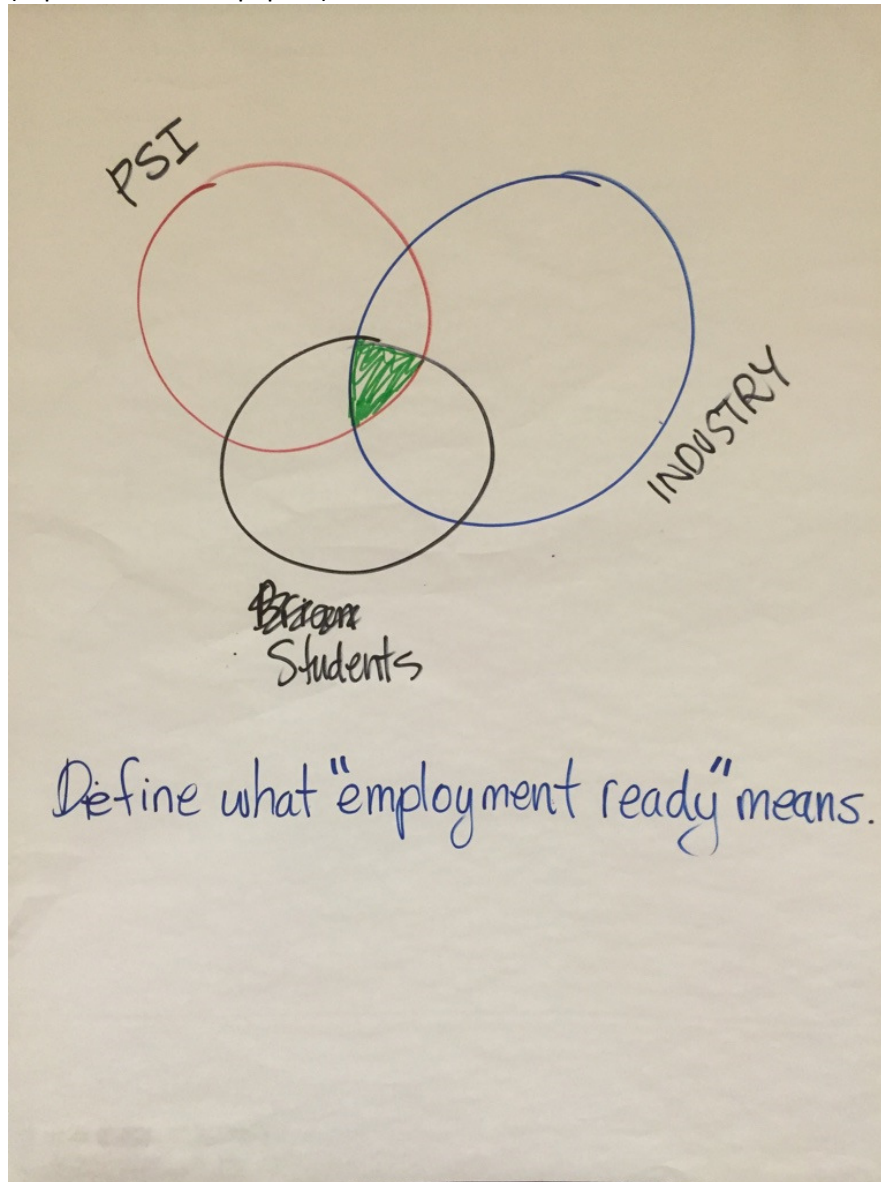 PSI
INDUSTRY
Students
Define what "employment ready" means.